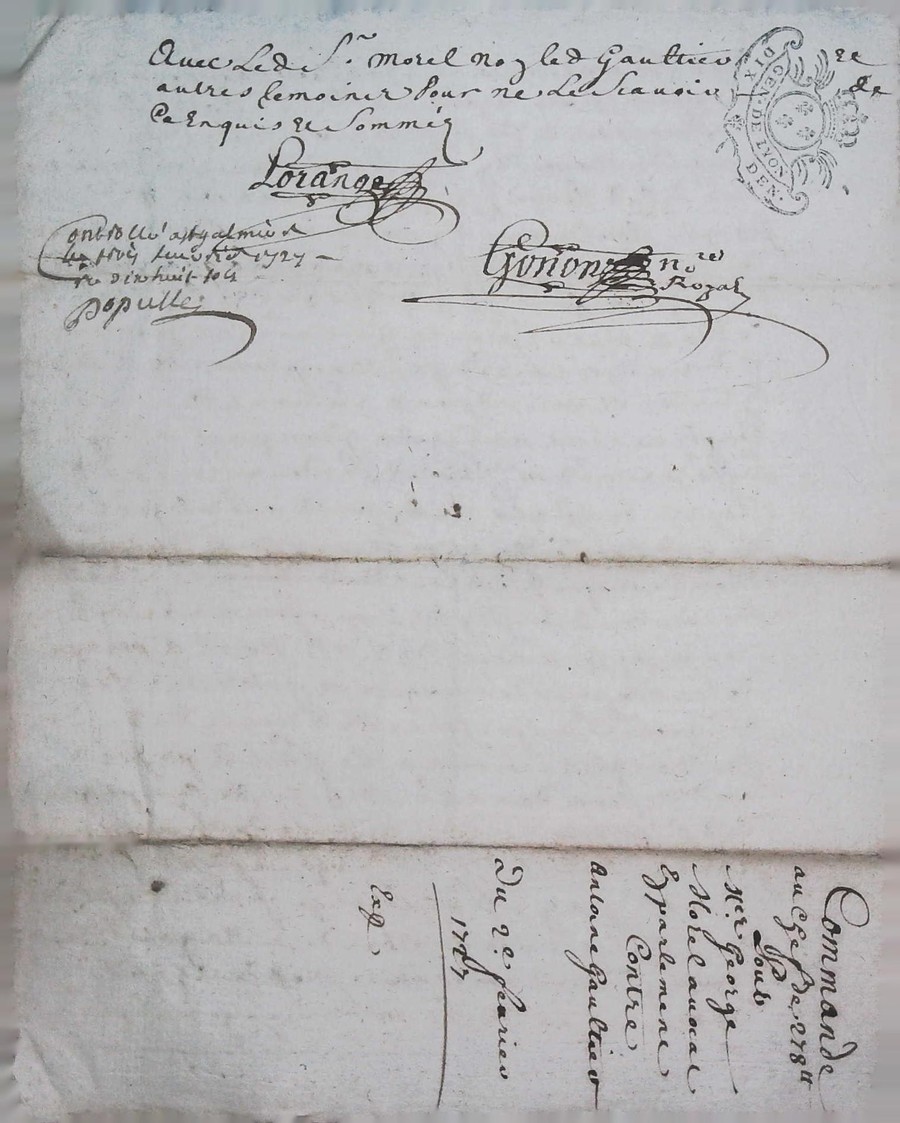 Avec Led Sr. morel non led Gaultier et
autres temoins Pour ne Le Scavoir de
Ce Enquis et Sommés
Lorange
Controllé a St galmier
le trois feuvrier 1727
dixhuit sols
Populle
Gonon nore
Royal
GEN. DE LYON
DIX DEN.
Commande
au Chef de 278tt
Pour
Mer George
Morel avocat
En parlement
Contre
Antoine Gaultier
Du 2e. feavrier
1727
Exp